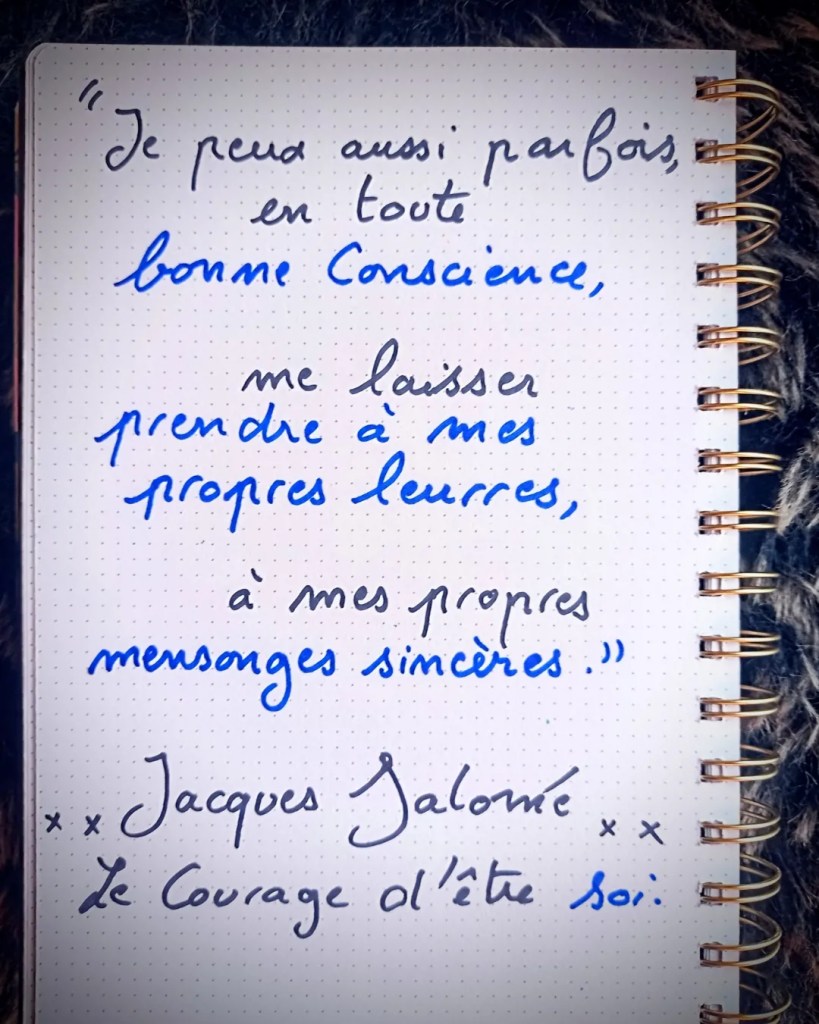 "Je peux aussi parfois,
en toute
bonne Conscience,
me laisser
prendre à mes
propres leurres,
à mes propres
mensonges sincères."
x x Jacques Salomé x x
Le Courage d'être soi.